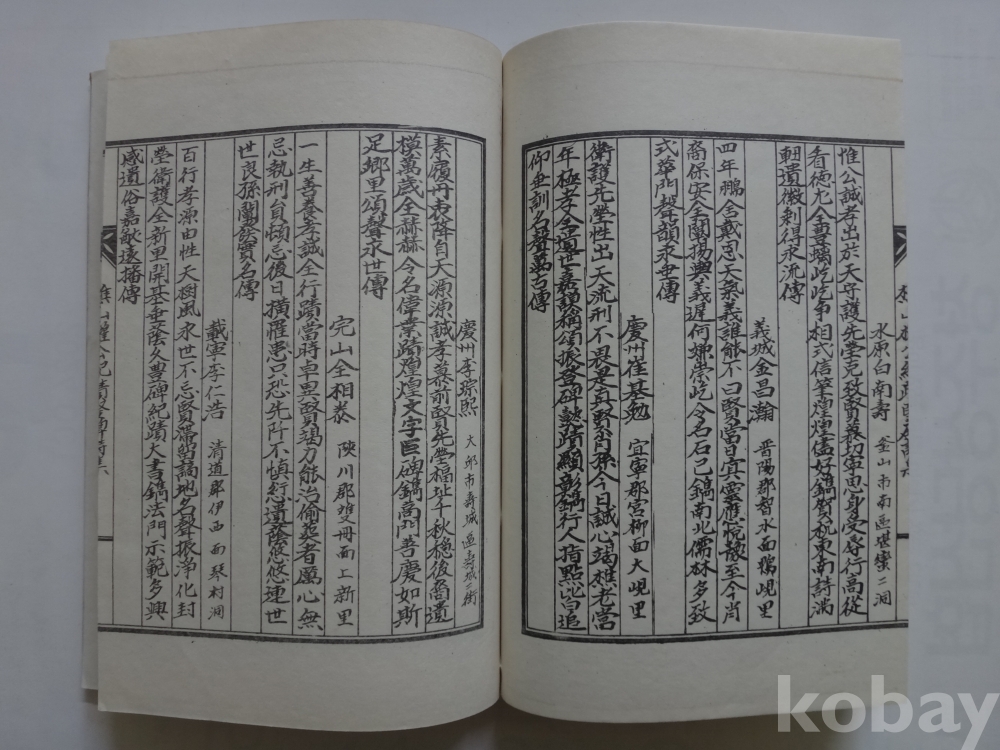 水原白南壽 釜山市南區 二洞
惟公誠孝出於天守護先塋克致賢義切軍由身受辱行高從
看德九 豊碣屹屹爭相式信筆煌煌儘好鎬賀軸東南詩滿
軔遺徽剩得永流傳
義城金昌瀚 晋陽郡智水面鴨峴里
四年鵬舍戴忠天氣義誰能不曰賢當日宜靈應悅 至今肖
裔保安全闡揚興義遲何 崇屹今名石已鎬南北儒林多致
式華門聲 永世傳
慶州崔基勉 宜寧郡宮柳面大峴里
衛護先塋性出天流刑不畏是眞賢肖孫今日誠心竭 老當
年極孝全 世嘉謨稱頌振 碑 蹟顯彰鎬行人指點此皆追
仰垂訓名聲萬古傳
慶州李琮熙 大邱市壽城區壽城二街
素履丹衷降自天源源誠孝慕前賢先塋福址千秋穩後裔遺
模萬歲全赫赫令名偉業蹟煌煌文字巨碑鎬高門善慶如斯
足鄉里頌聲永世傳
完山全相泰 陜川郡雙冊面上新里
一生善養孝誠全行蹟當時卓異賢竭力能治偷葬者厲心無
忌執刑員頓忘後日橫罹患只恐先阡不愼愆遺蔭悠悠連世
世良孫闡 實名傳
載寧李仁浩 清道郡伊西面琴村洞
百行孝源由性天樹風永世不忘賢 地名聲振淨化封
塋衛護全新里開基垂蔭久豊碑紀蹟大書鎬法門示範多興
感遺俗嘉猷遠播傳
kobay